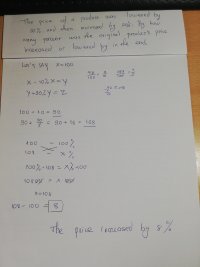 The price of a product was lowered by
10% and then increased by 20%. By how
many percent was the original product's price
increased or lowered by in the end.
Let's say x=100
X - 10% X = Y
Y + 20% Y = Z
100 - 10 = 90
90 + 90/5 = 90 + 18 = 108
100 - 100%
108 - X%
100% · 108 = X% · 100
10800 = X · 100
X = 108
108 - 100 = 8
The price increased by 8%